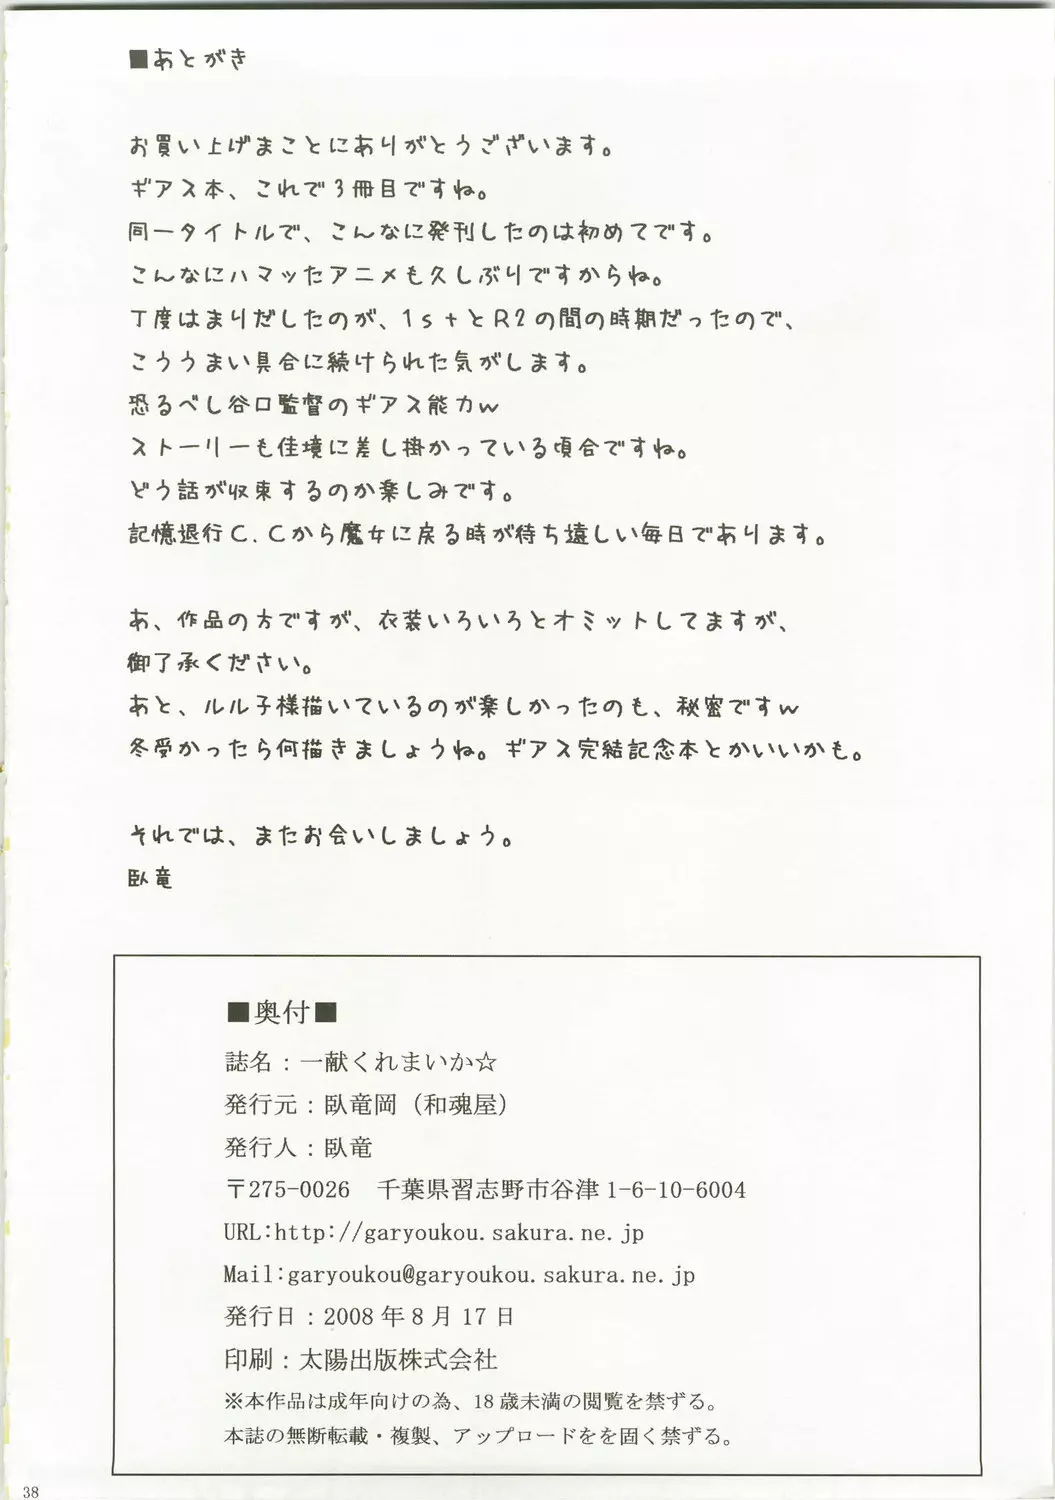 ■あとがき
お買い上げまことにありがとうございます。
ギアス本、これで3冊目ですね。
同一タイトルで、こんなに発刊したのは初めてです。
こんなにハマッたアニメも久しぶりですからね。
丁度はまりだしたのが、1stとR2の間の時期だったので、
こううまい具合に続けられた気がします。
恐るべし谷口監督のギアス能力w
ストーリーも佳境に差し掛かっている頃合ですね。
どう話が収束するのか楽しみです。
記憶退行C.Cから魔女に戻る時が待ち遠しい毎日であります。
あ、作品の方ですが、衣装いろいろとオミットしてますが、
御了承ください。
あと、ルル子様描いているのが楽しかったのも、秘密ですw
冬受かったら何描きましょうね。ギアス完結記念本とかいいかも。
それでは、またお会いしましょう。
臥竜
■奥付■
誌名：一献くれまいか☆
発行元：臥竜岡（和魂屋）
発行人：臥竜
〒275-0026　千葉県習志野市谷津1-6-10-6004
URL:http://garyoukou.sakura.ne.jp
Mail:garyoukou@garyoukou.sakura.ne.jp
発行日：2008年8月17日
印刷：太陽出版株式会社
※本作品は成年向けの為、18歳未満の閲覧を禁ずる。
本誌の無断転載・複製、アップロードをを固く禁ずる。
38